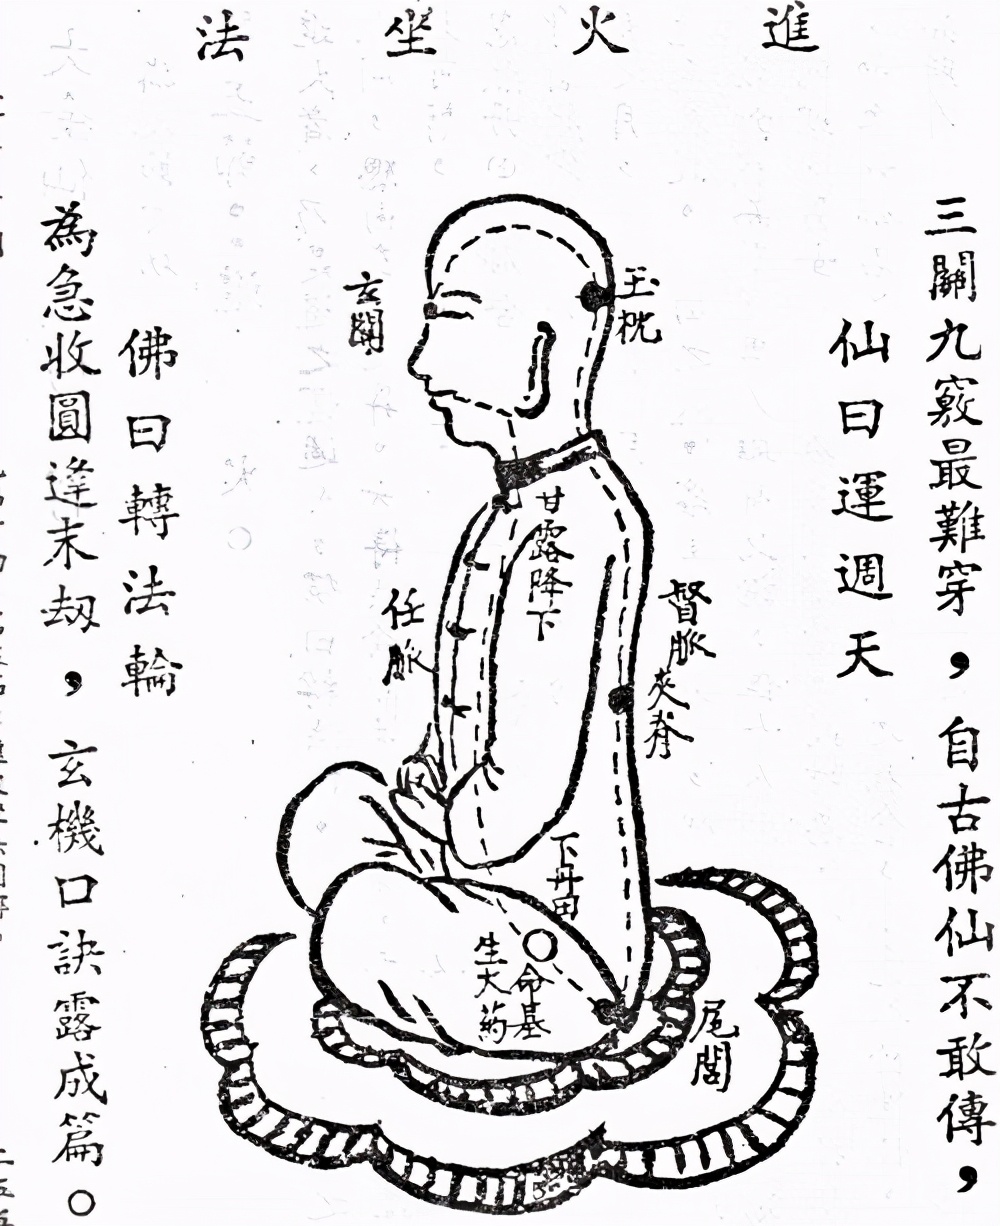 進火坐法
三關九竅最難穿，自古佛仙不敢傳，
仙曰運週天
玉枕
玄關
甘露降下
督脈
任脈
夾脊
下丹田
命基
生大药
尾閭
佛曰轉法輪
為急收圓逢末刼，玄機口訣露成篇。